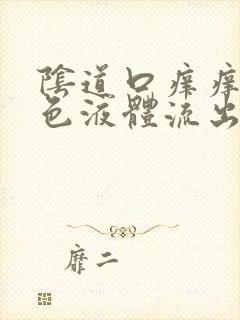 陰道口癢癢
色液體流出
靡二